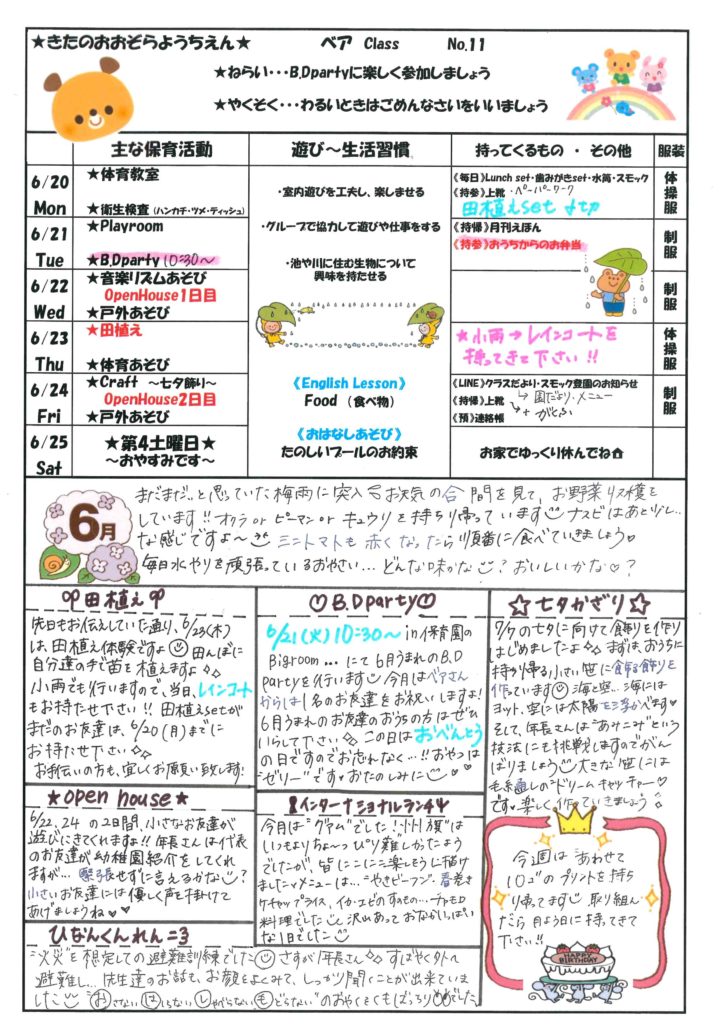 ★きたのおおぞらようちえん★ ベア Class No.11
★ねらい・・・B.Dpartyに楽しく参加しましょう
★やくそく・・・わるいときはごめんなさいをいいましょう
主な保育活動 遊び～生活習慣 持ってくるもの ・ その他 服装
6/20 Mon
★体育教室
★衛生検査（ハンカチ・ツメ・ティッシュ）
6/21 Tue
★Playroom
★B.Dparty 10:30～
6/22 Wed
★音楽リズムあそび
OpenHouse1日目
★戸外あそび
6/23 Thu
★田植え
★体育あそび
6/24 Fri
★Craft ～七夕飾り～
OpenHouse2日目
★戸外あそび
6/25 Sat
★第4土曜日★
～おやすみです～
・室内遊びを工夫し、楽しませる
・グループで協力して遊びや仕事をする
・池や川に住む生物について
興味を持たせる
《English Lesson》
Food （食べ物）
《おはなしあそび》
たのしいプールのお約束
《毎日》Lunch set・歯みがきset・水筒・スモック
《持参》上靴 ・ペーパーワーク
田植えset
《持帰》月刊えほん
《持参》おうちからのお弁当
★小雨→レインコートを
持ってきて下さい!!
《LINE》クラスだより・スモック登園のお知らせ
《持帰》上靴 園だより・メニュー
《預》連絡帳
お家でゆっくり休んでね
体操服
制服
制服
体操服
制服
6月
まだまだ…と思っていた梅雨に突入 お天気の合間を見て、お野菜収穫を
しています!! オクラ or ピーマン or キュウリを持ち帰っています ナスビはあと少し…
な感じですよ～ ミニトマトも赤くなったら順番に食べていきましょう
毎日水やりを頑張っているおやさい… どんな味かな? おいしいかな?
田植え
先日もお伝えしていた通り、6/23(木)
は、田植え体験ですよ 田んぼに
自分達の手で苗を植えますよ
小雨でも行いますので、当日、レインコート
もお持たせ下さい!! 田植えsetが
まだのお友達は、6/20(月)までに
お持たせ下さい
お手伝いの方も、宜しくお願い致します!
B.Dparty
6/21(火)10:30～ in 保育園の
Bigroom…にて6月うまれのB.D
partyを行います 今月はベアさん
からは1名のお友達をお祝いしますよ!
6月うまれのお友達のおうちの方はぜひ
いらして下さい この日はおべんとう
の日ですのでお忘れなく…!! おやつは
"ゼリー"です おたのしみに
☆七夕かざり☆
7/7の七夕に向けて飾りを作り
はじめましたよ まずは、おうちに
持ち帰る小さい笹に飾る飾りを
作っています 海と空…海には
ヨット、空には太陽
そして、年長さんは"あみこみ"という
技法にも挑戦しますのでがん
ばりましょう 大きな笹には
毛糸通しの"ドリームキャッチャー"
です 楽しく作っていきましょう
★open house★
6/22、24 の2日間、小さなお友達が
遊びにきてくれますよ!! 年長さんは代表
のお友達が幼稚園紹介をしてくれ
ますが… 緊張せずに言えるかな?
小さいお友達には優しく声を掛けて
あげましょうね
インターナショナルランチ
今月は"グアム"でした! "州旗"は
いつもよりちょ～っぴり難しかったよう
でしたが、皆にこにこ楽しそうに描け
ました メニューは…"やきビーフン・春巻き
ケチャップライス、イカ・エビのすのもの…チャモロ
料理でした 沢山あっておなかいっぱい
な1日でした
今週は"あわせて
10"のプリントを持ち
帰ってます 取り組ん
だら月よう日に持ってきて
下さい!!
HAPPY BIRTHDAY
ひなんくんれん
"火災"を想定しての避難訓練でした さすが年長さん すばやく外へ
避難し…先生達のお話も、お顔をよくみて、しっかり聞くことが出来ていま
した "おさない はしらない しゃべらない もどらない"のおやくそくもばっちりでした